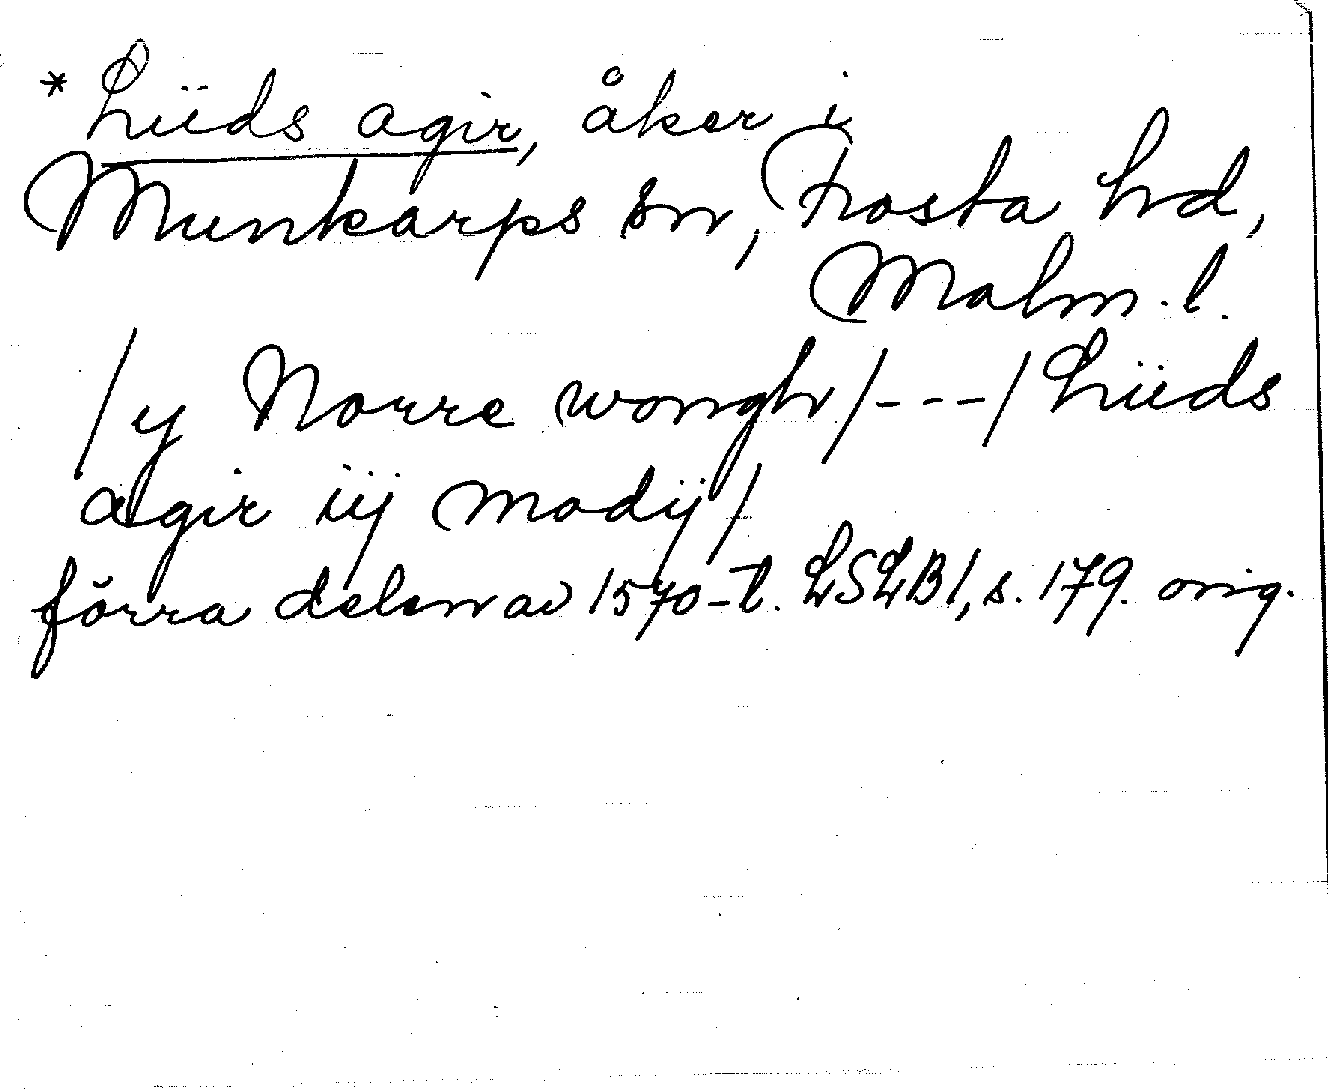 * Lüds agir, åker i
Munkarps sn, Frosta hd,
Malm. l.
/y Norre wongh/---/Lüds
agir iij modij/
förra delen av 1570-t. LSLB1, s. 179. orig.